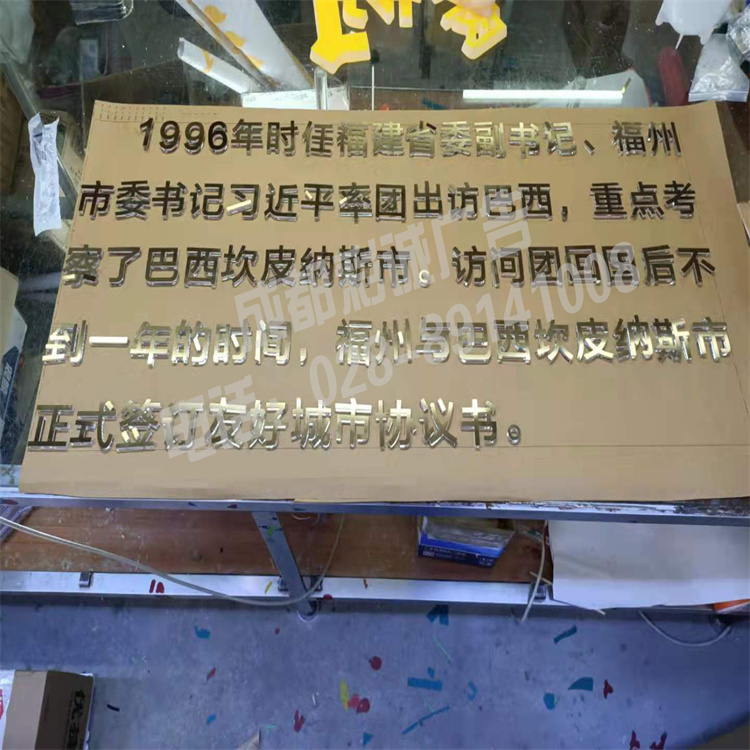 1996年时任福建省委副书记、福州
市委书记习近平率团出访巴西，重点考
察了巴西坎皮纳斯市。访问团回国后不
到一年的时间，福州与巴西坎皮纳斯市
正式签订友好城市协议书。
成都彩城广告
电话：028-89141008